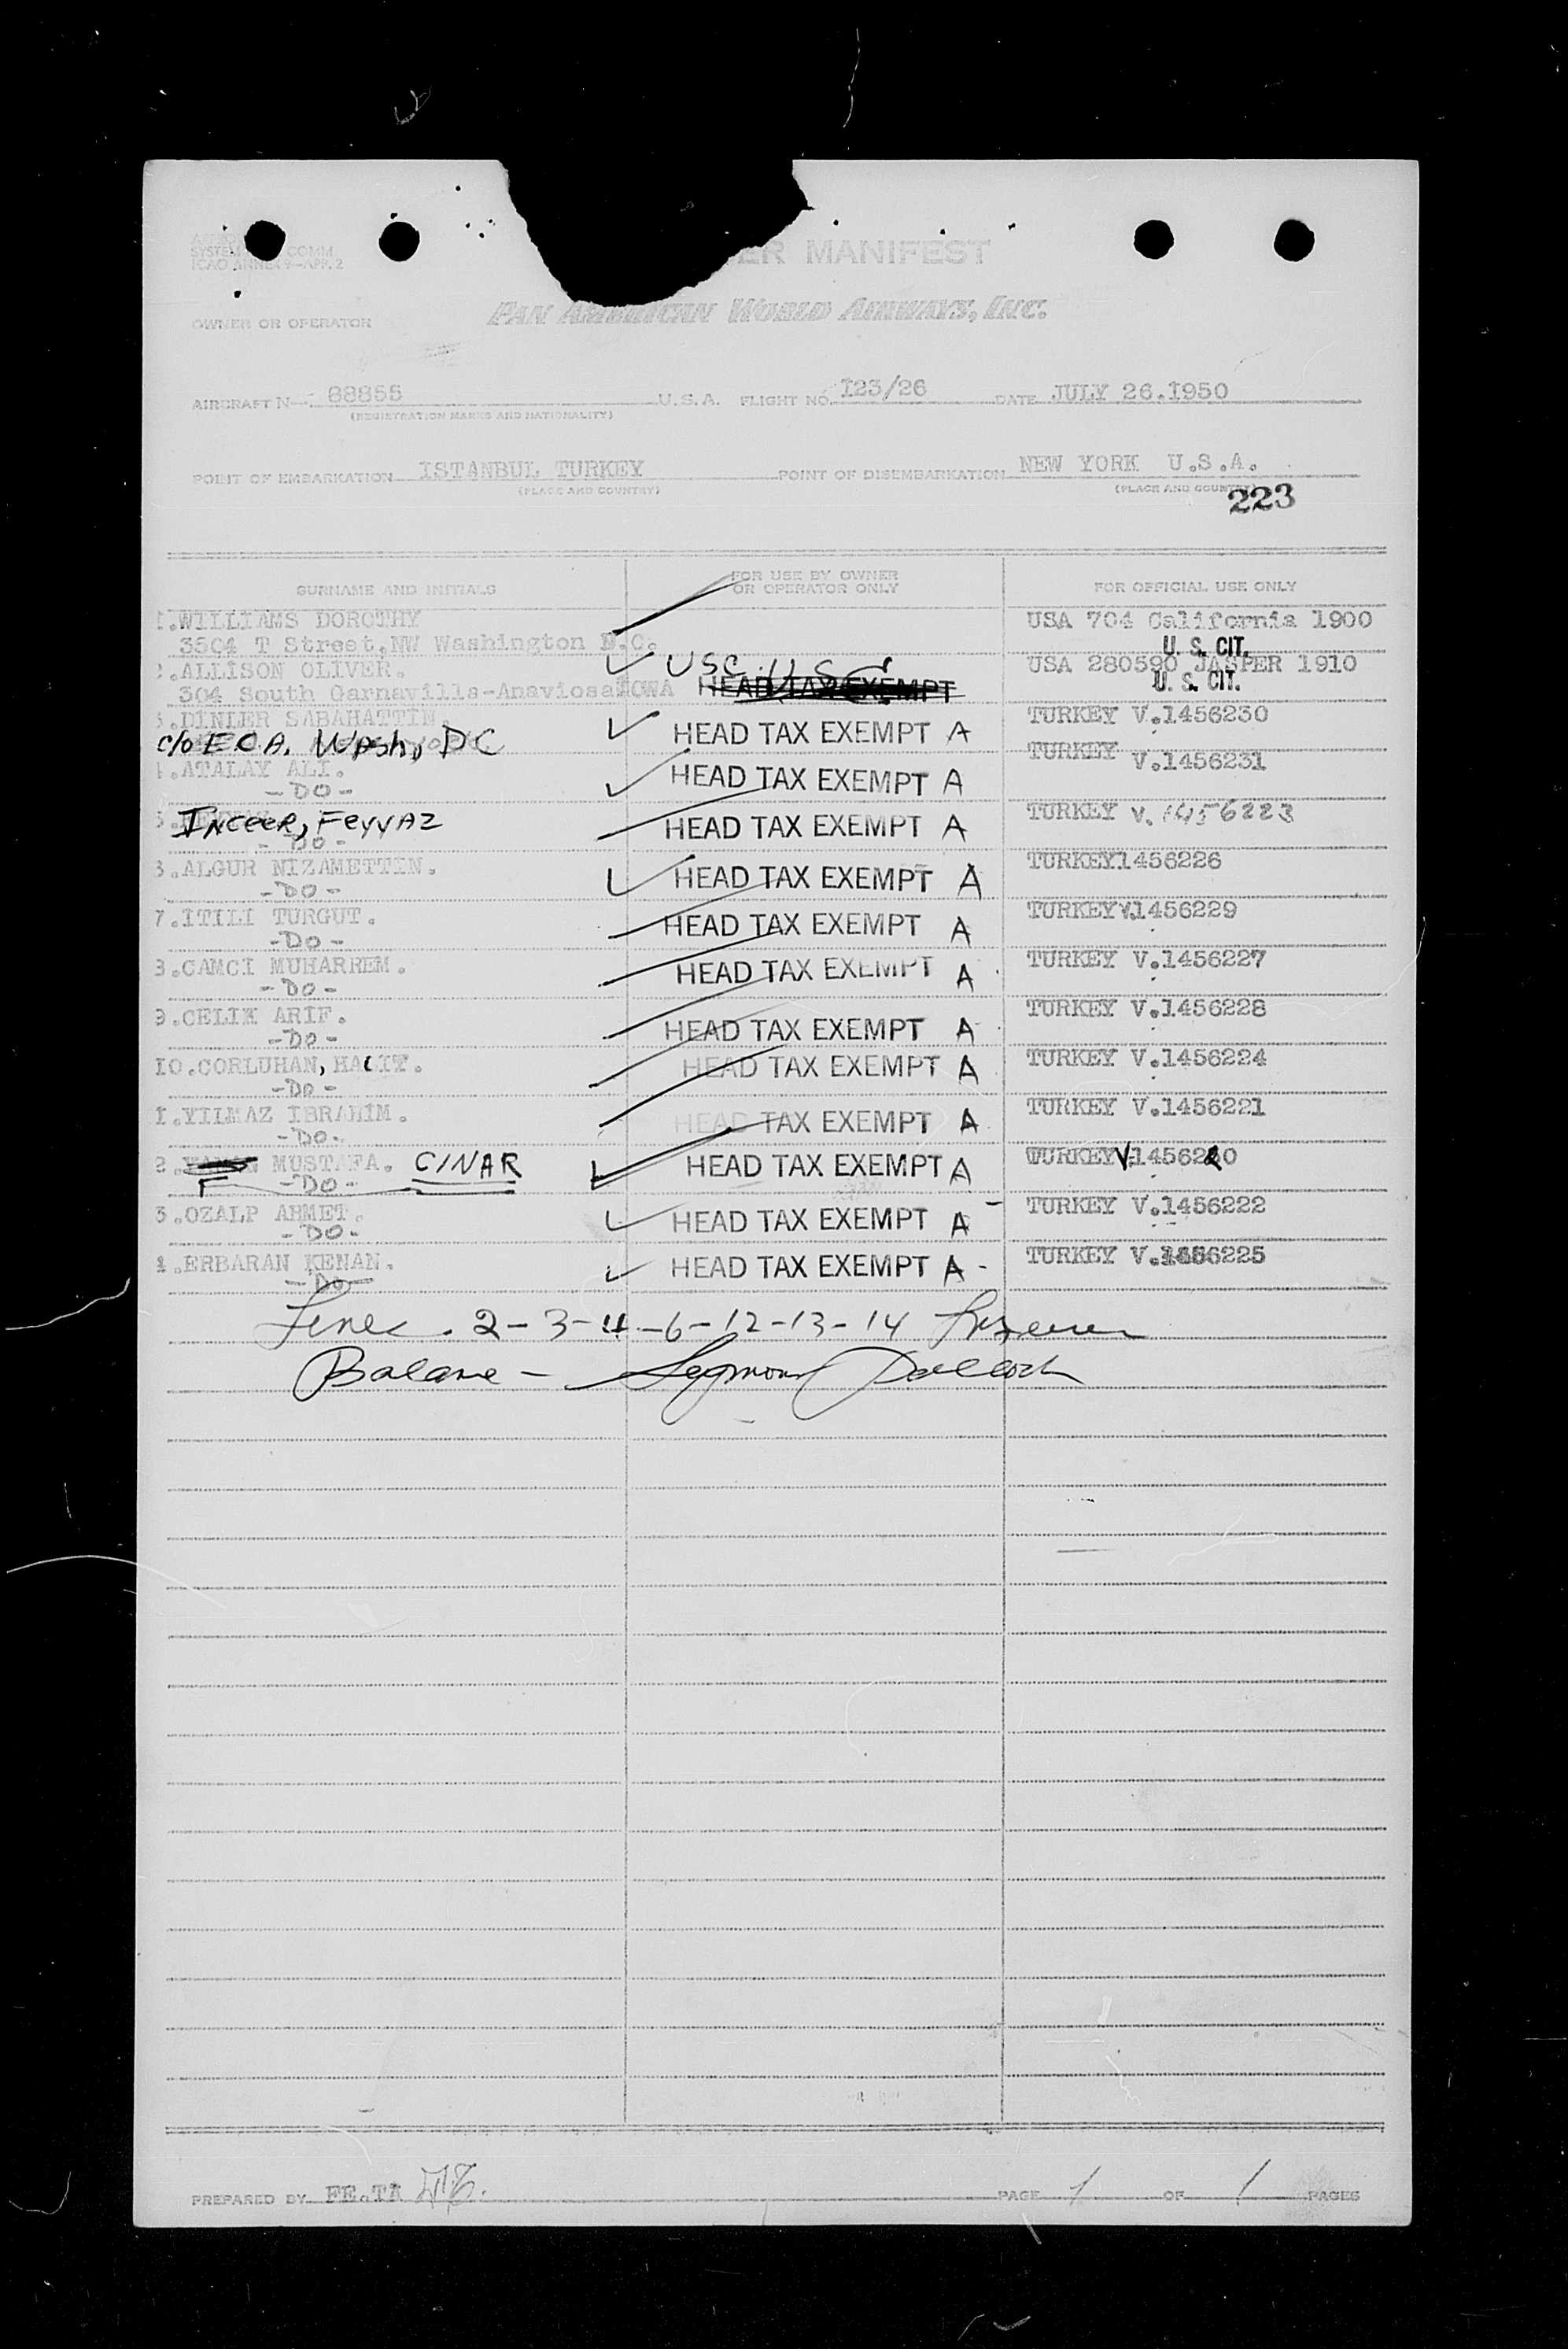 SYSTEM COMM.
ICAO ANNEX 9—APP. 2
ER MANIFEST
OWNER OR OPERATOR PAN AMERICAN WORLD AIRWAYS, INC.
AIRCRAFT N- 88855 U.S.A. FLIGHT NO. 123/26 DATE JULY 26.1950
(REGISTRATION MARKS AND NATIONALITY)
POINT OF EMBARKATION ISTANBUL TURKEY POINT OF DISEMBARKATION NEW YORK U.S.A.
(PLACE AND COUNTRY) (PLACE AND COUNTRY)
223
SURNAME AND INITIALS FOR USE BY OWNER OR OPERATOR ONLY FOR OFFICIAL USE ONLY
1.WILLIAMS DOROTHY USA 704 California 1900
3504 T Street,NW Washington D.C. U. S. CIT.
2.ALLISON OLIVER. USC USC USA 280590 JASPER 1910
304 South Garnavilla-Anaviosa IOWA HEAD TAX EXEMPT U. S. CIT.
3.DINLER SABAHATTIN. TURKEY V.1456230
c/o ECA. Wash, DC HEAD TAX EXEMPT A
4.ATALAY ALI. TURKEY V.1456231
-DO- HEAD TAX EXEMPT A
5. INCEER, FEYYAZ TURKEY V.1456223
-DO- HEAD TAX EXEMPT A
6.ALGUR NIZAMETTIN. TURKEY1456226
-DO- HEAD TAX EXEMPT A
7.ITILI TURGUT. TURKEY V.1456229
-DO- HEAD TAX EXEMPT A
8.CAMCI MUHARREM. TURKEY V.1456227
-DO- HEAD TAX EXEMPT A
9.CELIK ARIF. TURKEY V.1456228
-DO- HEAD TAX EXEMPT A
10.CORLUHAN, HALIT. TURKEY V.1456224
-DO- HEAD TAX EXEMPT A
1.YILMAZ IBRAHIM. TURKEY V.1456221
-DO- HEAD TAX EXEMPT A
2. MUSTAFA. CINAR HEAD TAX EXEMPT A TURKEY V.1456220
-DO-
3.OZALP AHMET. TURKEY V.1456222
-DO- HEAD TAX EXEMPT A
4.ERBARAN KENAN. TURKEY V.1456225
-DO- HEAD TAX EXEMPT A-
Lines. 2-3-4-6-12-13-14
Balance - Seymour
PREPARED BY FE.TA PAGE 1 OF 1 PAGES